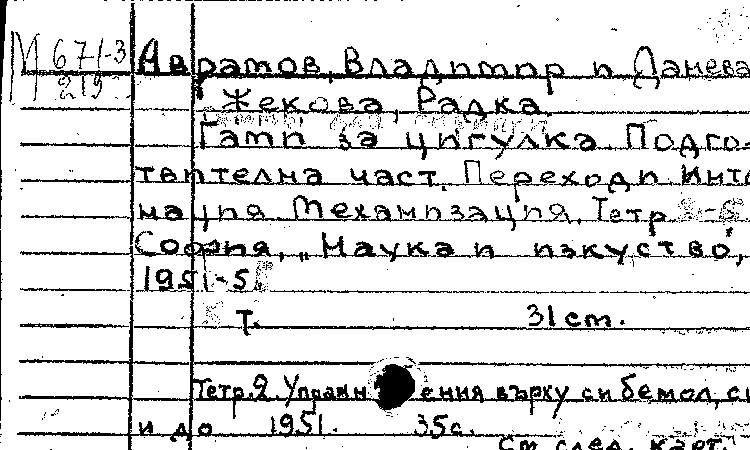 М 67/-3
219
Аврамов, Владимир и Данева
Жекова, Радка.
Гами за цигулка. Подго-
твителна част. Преходи. Инто
нация. Механизация. Тетр.
София, „Наука и изкуство",
1951-5
т. 31 см.
Тетр. 2. Упражнения върху си бемол, си
и до 1951. 35 с.
см. след. карт.